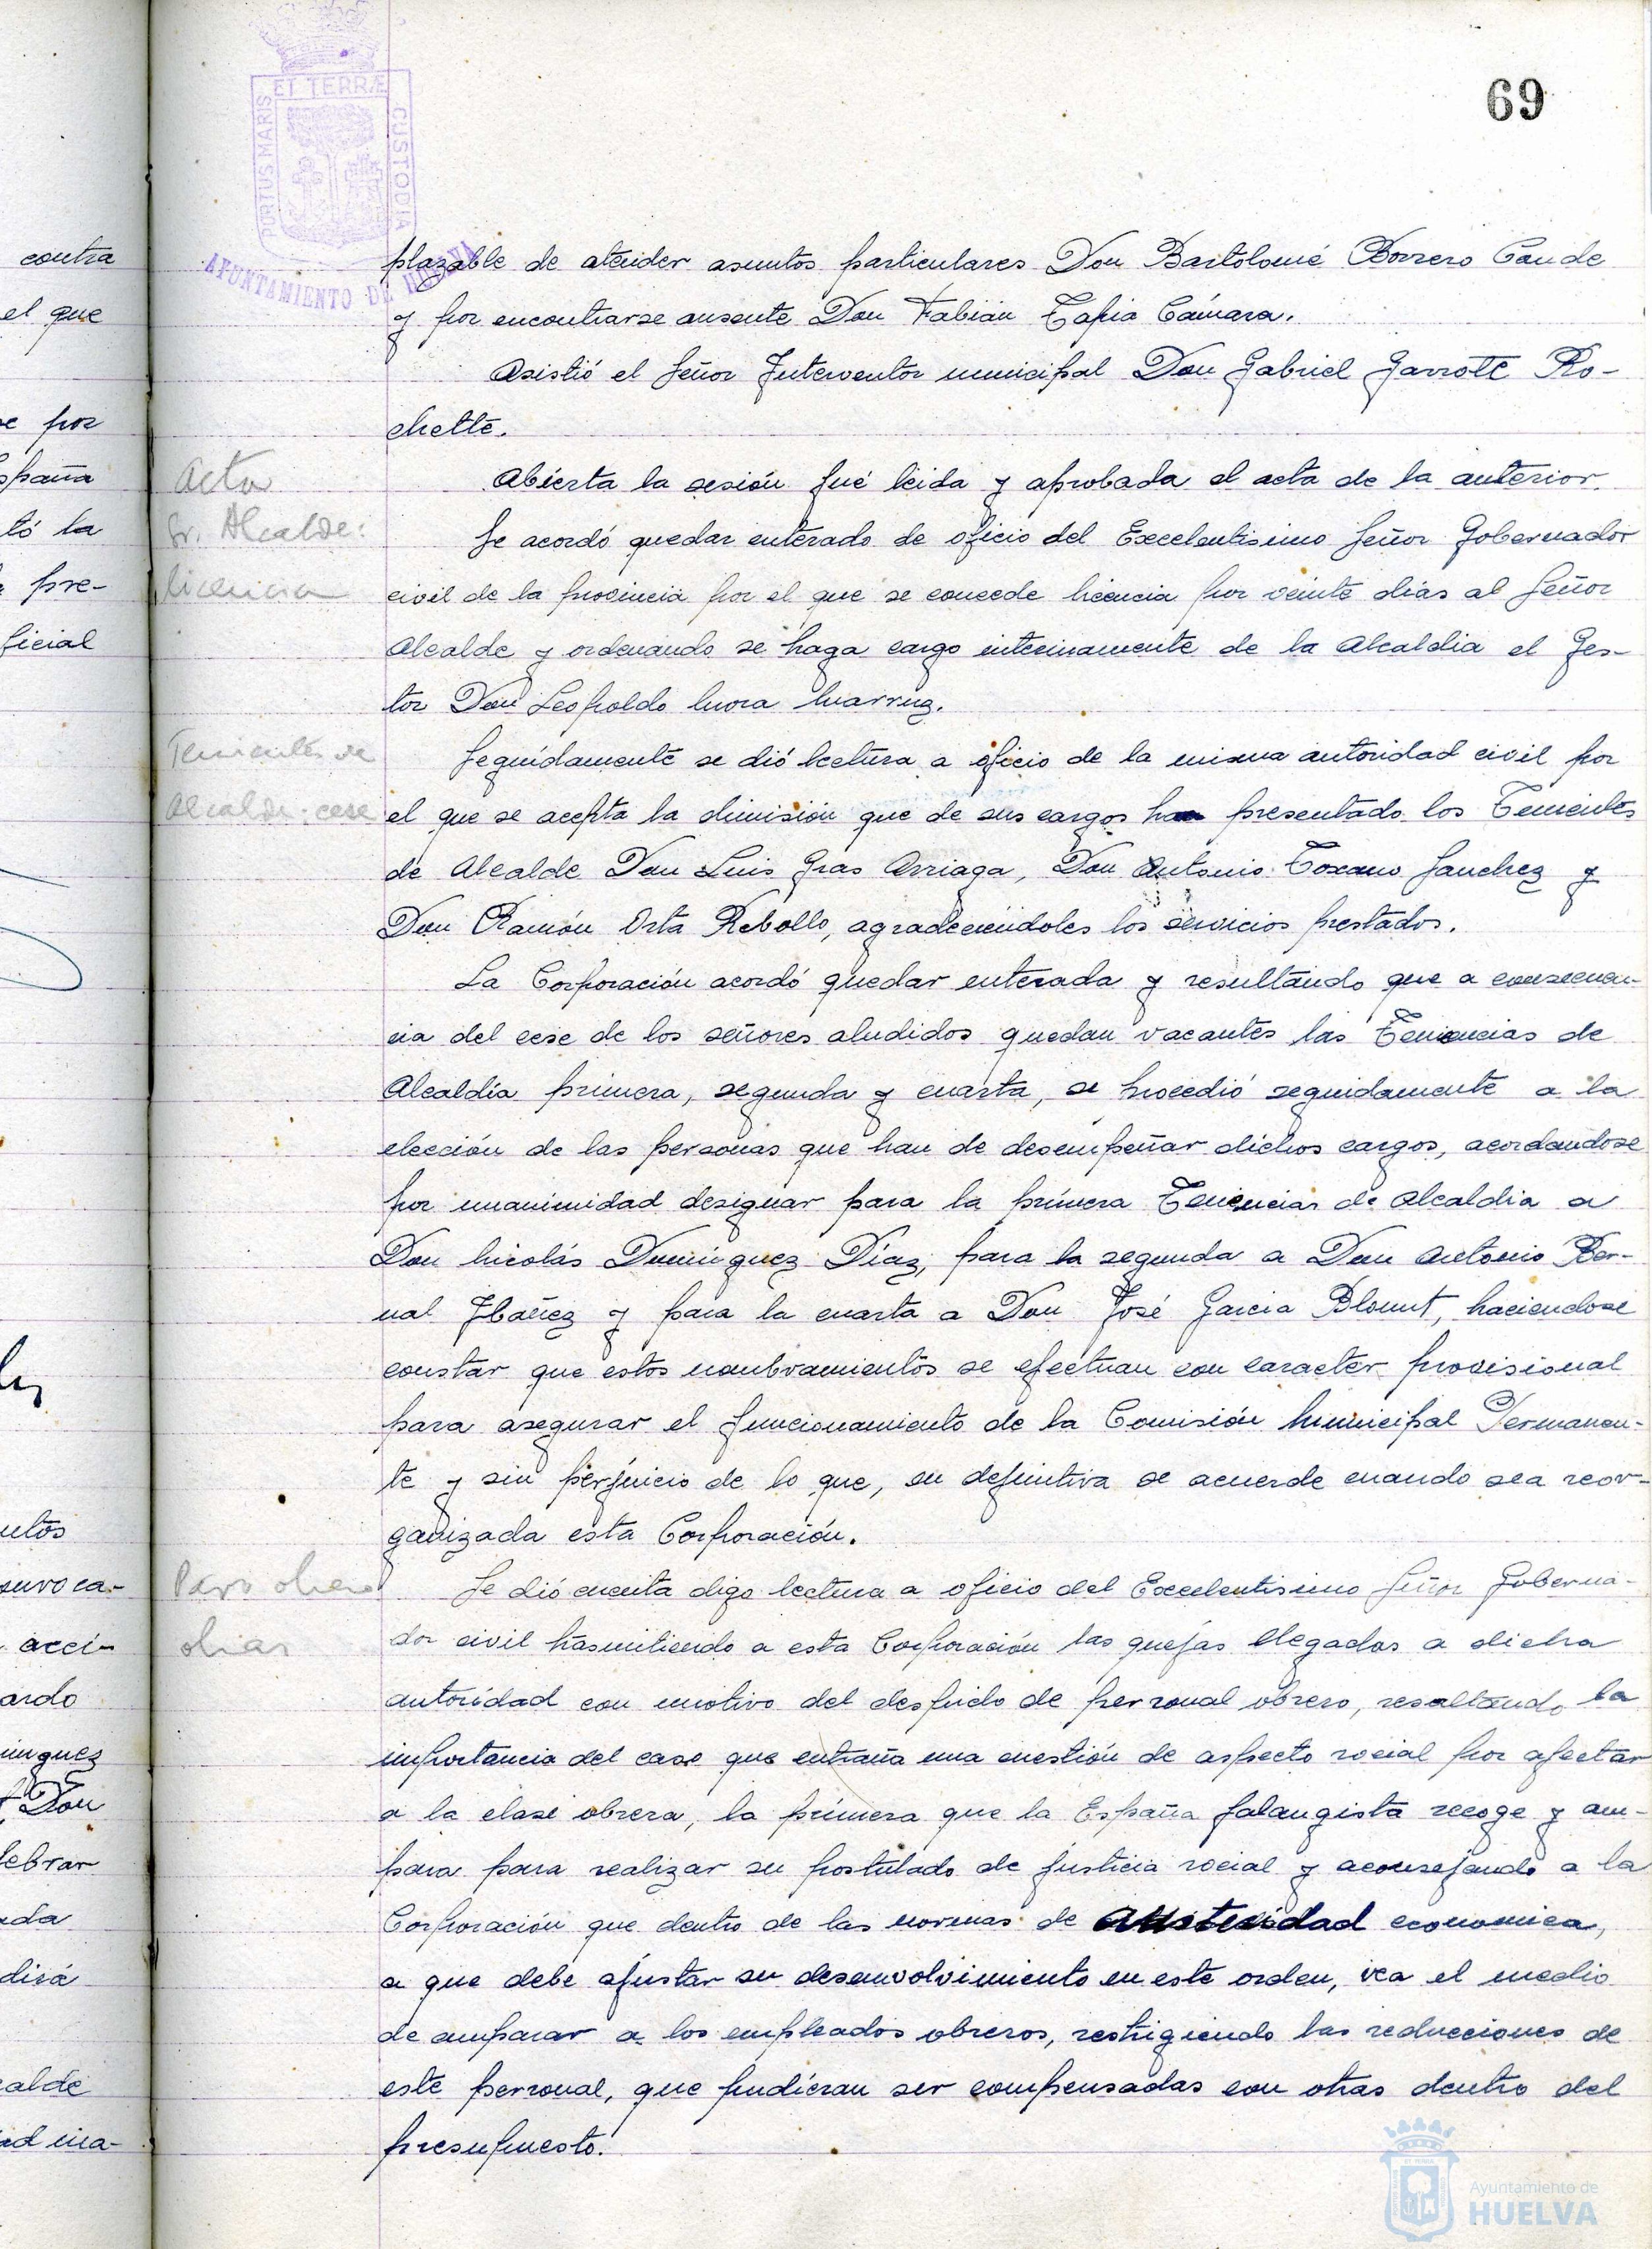 69
PORTUS MARIS ET TERRÆ CUSTODIA
AYUNTAMIENTO DE HUELVA
plazable de atender asuntos particulares Don Bartolomé Borrero Conde
y por encontrarse ausente Don Fabián Tapia Cámara.
Asistió el Señor Interventor municipal Don Gabriel Garrote Ro-
chette.
Acta
Abierta la sesión fué leida y aprobada el acta de la anterior.
Sr. Alcalde:
licencia
Se acordó quedar enterado de oficio del Excelentisimo Señor Gobernador
civil de la provincia por el que se concede licencia por veinte dias al Señor
Alcalde y ordenando se haga cargo interinamente de la Alcaldia el Ges-
tor Don Leopoldo Mora
Tenientes de
Alcalde: cese
Seguidamente se dió lectura a oficio de la misma autoridad civil por
el que se acepta la dimisión que de sus cargos han presentado los Tenientes
de Alcalde Don Luis Gras Arriaga, Don Antonio Toscano Sanchez y
Don Ramón Orta Rebollo, agradeciéndoles los servicios prestados.
La Corporación acordó quedar enterada y resultando que a consecuen-
cia del cese de los señores aludidos quedan vacantes las Tenencias de
Alcaldía primera, segunda y cuarta, se procedió seguidamente a la
elección de las personas que han de desempeñar dichos cargos, acordandose
por unanimidad designar para la primera Tenencias de Alcaldia a
Don Nicolás Domínguez Díaz, para la segunda a Don Antonio Ber-
nal Ibañez y para la cuarta a Don José Garcia Blount, haciendose
constar que estos nombramientos se efectuan con caracter provisional
para asegurar el funcionamiento de la Comisión Municipal Permanen-
te y sin perjuicio de lo que, en definitiva se acuerde cuando sea reor-
ganizada esta Corporación.
Paro obrero
Se dió cuenta digo lectura a oficio del Excelentisimo Señor Goberna-
dor civil trasmitiendo a esta Corporación las quejas llegadas a dicha
autoridad con motivo del despido de personal obrero, resaltando la
importancia del caso que entraña una cuestión de aspecto social por afectar
a la clase obrera, la primera que la España falangista recoge y am-
para para realizar su postulado de justicia social y aconsejando a la
Corporación que dentro de las normas de austeridad economica,
a que debe ajustar su desenvolvimiento en este orden, vea el medio
de amparar a los empleados obreros, restrigiendo las reducciones de
este personal, que pudieran ser compensadas con otras dentro del
presupuesto.
contra
el que
por
tó la
pre-
ficial
acci-
ardo
Don
lebrar
dirá
Ayuntamiento de
HUELVA